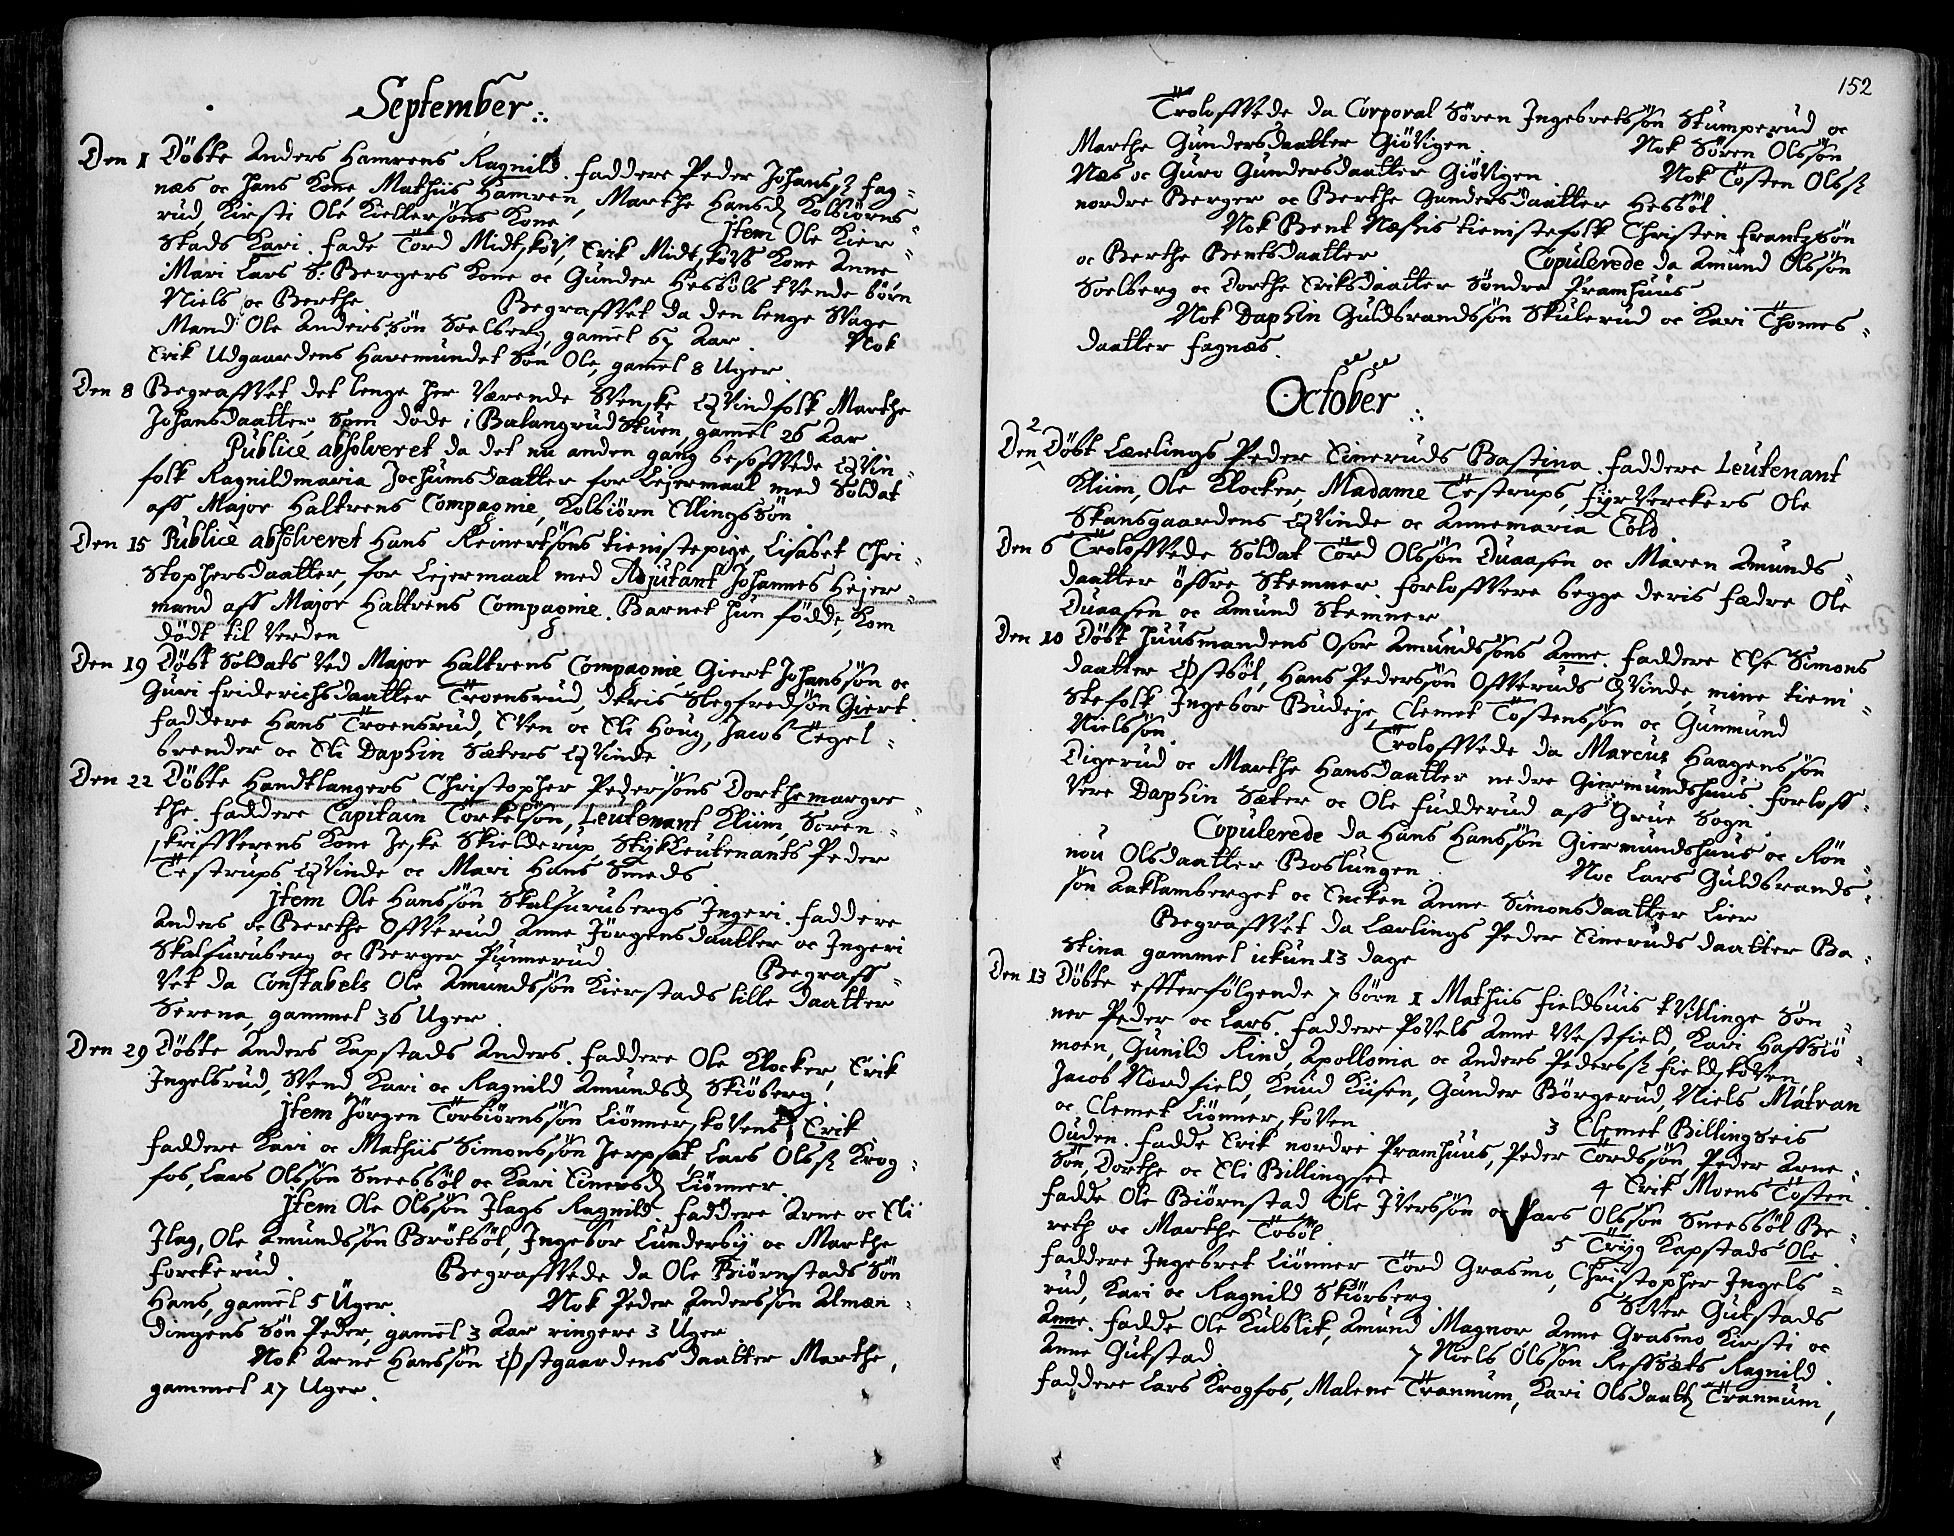 September.
Den 1 Döbte Anders Hamrens Ragnild. faddere Peder Johanss. Fag-
næs oc hans Kone Mathiis Hamren, Marthe Hansd. Kolbiörns-
rud, Kirsti Ole Kieltersöns Kone item Ole Kier-
stads Kari. fade Tord Midtskov, Erik Midtskovs Kone Anne
Mari Lars S. Bergers Kone oc Gunder Hesböls tvende börn
Niels oc Berthe Begraffvet da den lenge svage
Mand Ole Anderssön Soelberg, gamel 67 Aar. Nok
Erik Udgaardens Haremundet Sön Ole, gamel 8 Uger.
Den 8 Begraffvet det lenge her værende Svenske Qvindfolk Marthe
Johansdaatter, som döde i Balangrud Stuen, gamel 26 Aar
Publicè absolveret da det nu anden gang besoffvede Qvin-
folk Ragnildmaria Jochumsdaatter for Lejermaal med Soldat
aff Major Haltrens Compagnie, Kolbiörn Ellingssön
Den 15 Publicè absolveret Hans Reinertsöns tienistepige Lisabet Chri-
stophersdaatter, for Lejermaal med Adjutant Johannes Hejer-
mand aff Major Haltrens Compagnie. Barnet hun födde, kom
dödt til Verden
Den 19 Döbt Soldats ved Major Haltrens Compagnie Giert Johanssön oc
Guri Friderichsdaatter Troensrud, deris Slegfredsön Giert.
faddere Hans Troensrud, Even oc Eli Houg, Jacob Tegel-
brender oc Eli Daphin Sæters Qvinde
Den 22 Döbte Handtlangers Christopher Pedersöns Dorthemargre-
the. faddere Capitain Torkelsön, Leutenant Kliim, Soren-
skriffverens Kone Jeske Skielderup Stykleutenants Peder
Testrups Qvinde oc Mari Hans Smeds.
item Ole Hanssön Skalfurubergs Ingeri. faddere
Anders oc Berthe Offverud Anne Jörgensdaatter oc Ingeri
Skalfuruberg oc Berger Punnerud Begraff-
vet da Constabels Ole Amundssön Kierstads lille daatter
Serena, gammel 36 Uger.
Den 29 Döbte Anders Kapstads Anders. faddere Ole Klocker, Erik
Ingelsrud, Svend Kari oc Ragnild Amundsd. Skiöberg.
item Jörgen Torbiörnssön Liönnerskovens Erik
faddere Kari oc Mathiis Simonssön Jerpsæt, Lars Olss. Krog-
fos, Lars Olssön Sneesböl oc Kari Einersd. Liönner.
item Ole Olssön Ilags Ragnild faddere Arne oc Eli
Ilag, Ole Amundssön Brötböl, Ingebor Lundersby oc Marthe
Forckerud. Begraffvede da Ole Biörnstads Sön
Hans, gamel 5 Uger. Nok Peder Anderssön Almæn-
dingens Sön Peder, gamel 3 Aar ringere 3 Uger
Nok Arne Hanssön Østgaardens daatter Marthe,
gammel 17 Uger.
152
Troloffvede da Corporal Sören Ingebretssön Stumperud oc
Marthe Gundersdaatter Giövigen. Nok Sören Olssön
Næs oc Guro Gundersdaatter Giövigen. Nok Tosten Olss.
nordre Berger oc Berthe Gundersdaatter Hesböl.
Nok Bent Næssis tienistefolk Christen Frantzsön
oc Berthe Bentsdaatter Copulerede da Amund Olssön
Soelberg oc Dorthe Eriksdaatter Söndre Pramhuus
Nok Daphin Guldbrandssön Skulerud oc Kari Thomes-
daatter Fagnæs.
October
Den 2 Döbt Lærlings Peder Eineruds Bastina. faddere Leutenant
Kliim, Ole Klocker, Madame Testrups, Fyrverckers Ole
Skansgaardens Qvinde oc Annemaria Cold
Den 6 Troloffvede Soldat Tord Olssön Duaasen oc Maren Amunds-
daatter öffre Stemner. forloffvere begge deris fædre Ole
Duaasen oc Amund Stemner.
Den 10 Döbt Huusmandens Osor Amundssöns Anne. faddere Else Simons
daatter Østböl, Hans Pederssön Offveruds Qvinde, mine tieni-
stefolk Ingebor Budeje, Clemet Tostenssön oc Gunmund
Nielssön. Troloffvede da Marcus Haagenssön
Digerud oc Marthe Hansdaatter nedre Giermundshuus. forloff-
vere Daphin Sæter oc Ole Fudderud aff Grue Sogn
Copulerede da Hans Hanssön Giermundshuus oc Rön-
nou Olsdaatter Boslungen. Noc Lars Guldbrands-
sön Aaklamberget oc Encken Anne Simonsdaatter Lier
Begraffvet da Lærlings Peder Eineruds daatter Ba-
stina gammel ickun 13 dage
Den 13 Döbte effterfölgende 7 börn 1 Mathiis Fieldsuis tvillinge Sön-
ner Peder oc Lars. faddere Povels Anne Vestfield, Kari Haffsiö-
moen, Gunild Rind, Apollonia oc Anders Pederss. Fieldskoven
Jacob Nordfield, Knud Kiisen, Gunder Börgerud, Niels Matran
oc Clemet Liönnerskoven. 3 Clemet Billingseis
Ouden. fadde Erik nordre Pramhuus, Peder Tordssön, Peder Arne-
sön, Dorthe oc Eli Billingsee 4 Erik Moens Tosten.
fadde Ole Biörnstad Ole Iverssön oc Lars Olssön Sneesböl Be-
reth oc Marthe Tosböl. 5 Tryg Kapstads Ole.
faddere Ingebret Liönner Tord Grasmo, Christopher Ingels-
rud, Kari oc Ragnild Skiörberg 6 Siver Gukstads
Anne. fadde Ole Kulblik, Amund Magnor Anne Grasmo Kirsti oc
Anne Gukstad 7 Niels Olssön Reffsæts Ragnild.
faddere Lars Krogfos, Malene Trannum, Kari Olsdaatt. Trannum,